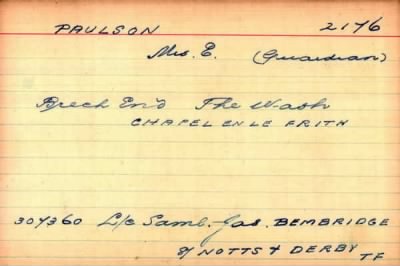 PAULSON 2176
Mrs. E. (Guardian)
Beech End The Wash
CHAPEL EN LE FRITH
307360 L/c Saml. Jas. BEMBRIDGE
8/ NOTTS & DERBY
TF